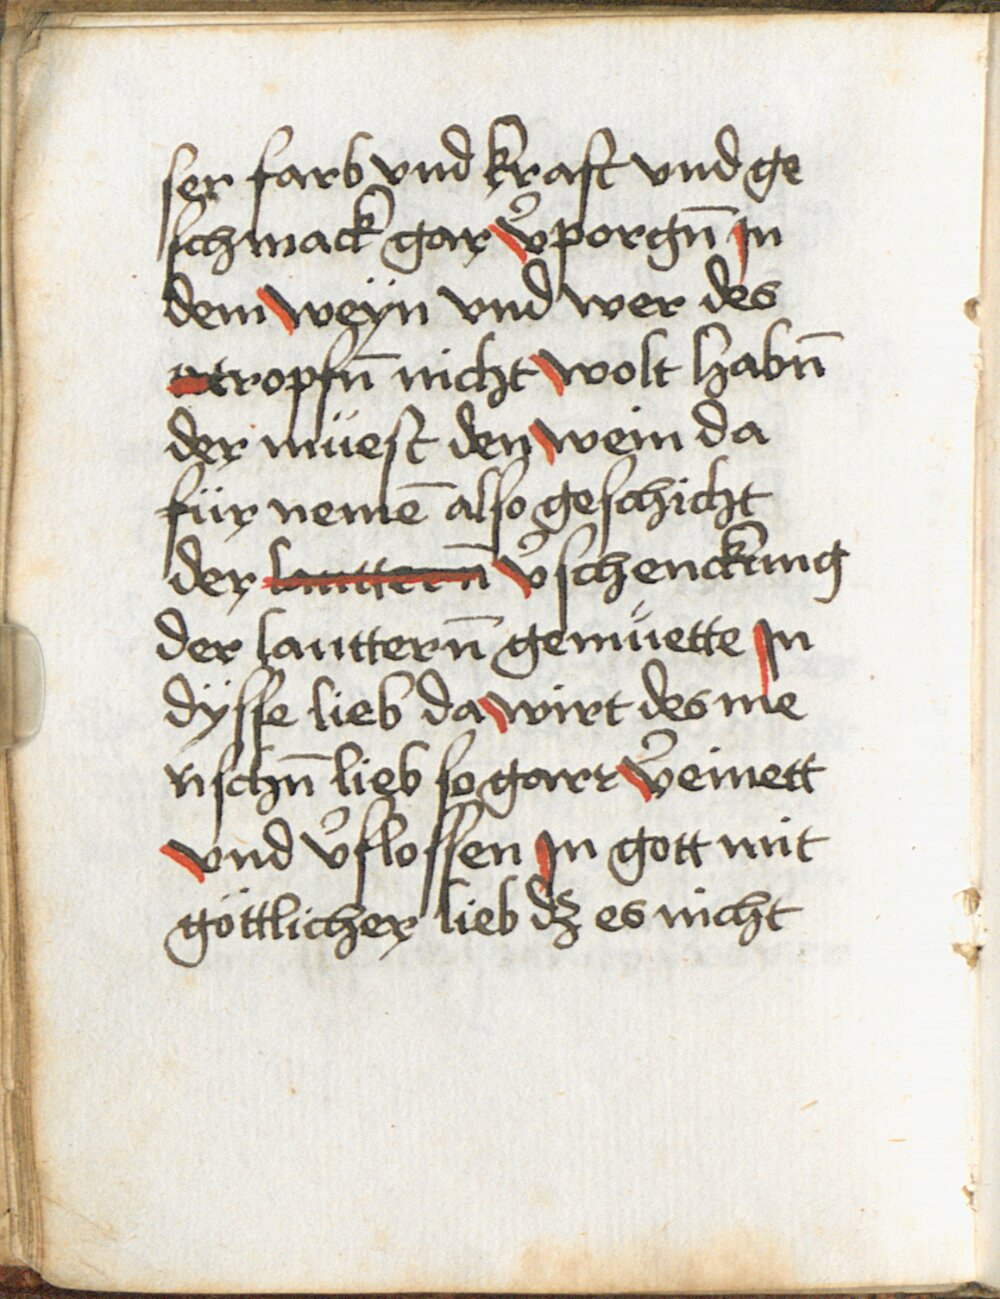 ser farb vnd kraft vnd ge
schmack gar v̉porgn̄ jn
dem weÿn vnd wer des
tropfn̄ nicht wolt habn̄
der müest den wein da
für nemē also geschicht
der lauttern̄ v̉schenckung
der lauttern̄ gemüette jn
dÿsse lieb da wirt des me
nschn̄ lieb so garr v̉einett
vnd v̉flossen jn gott mit
göttlicher lieb dʒ es nicht